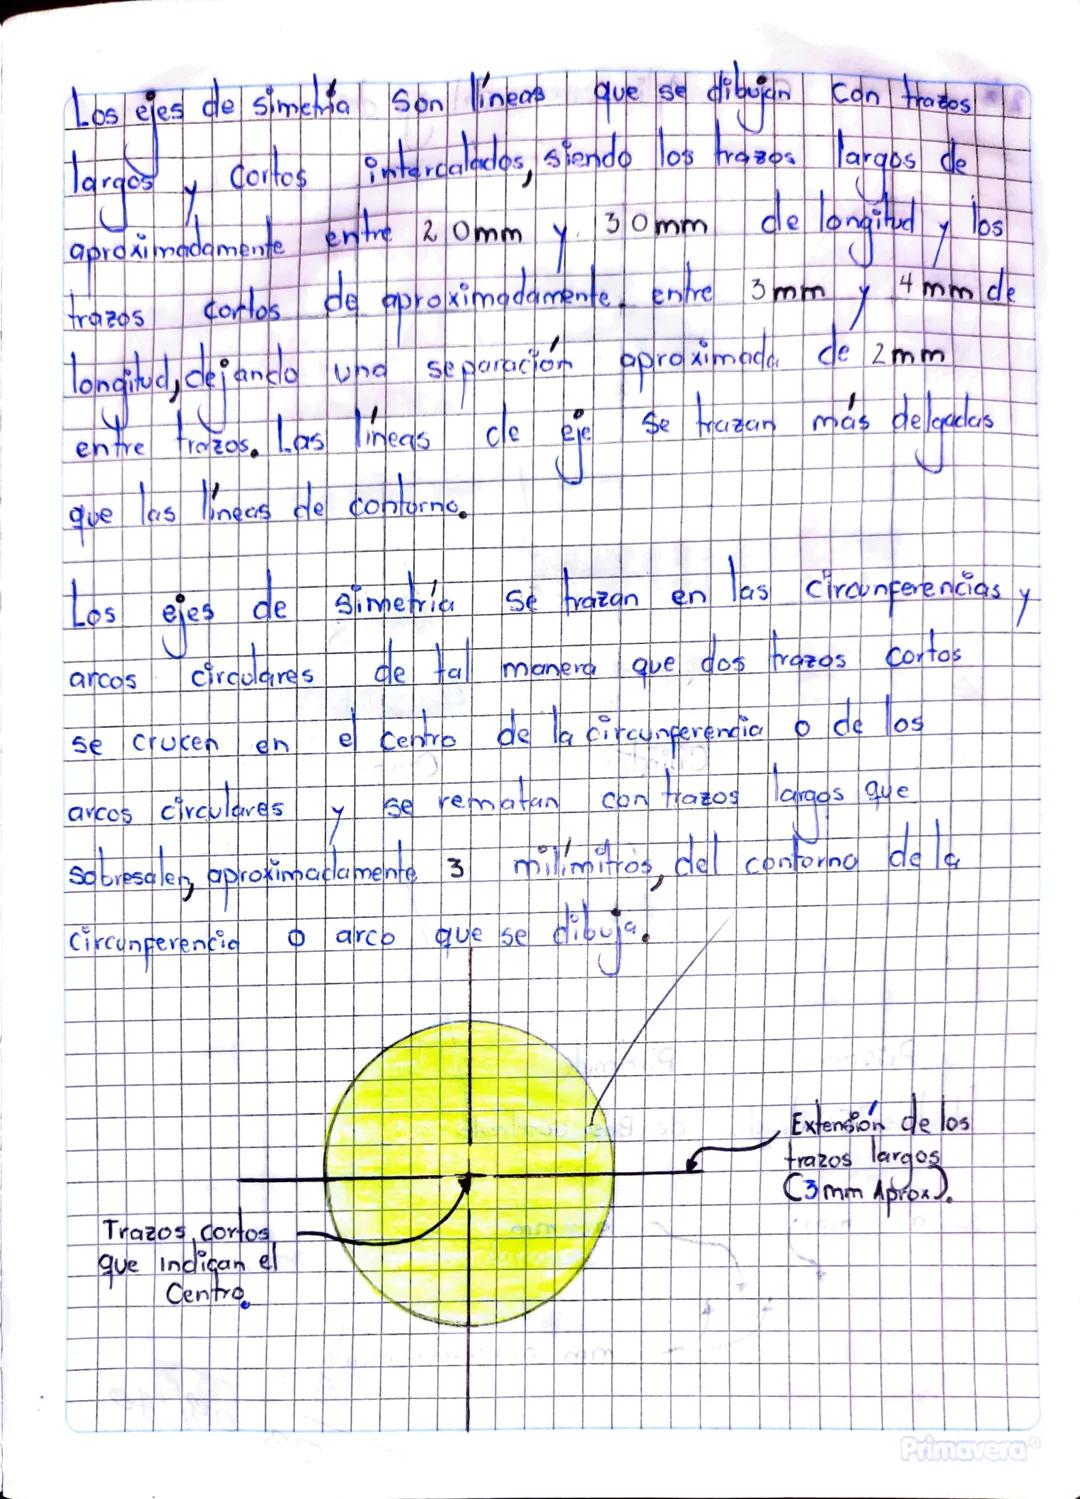 Los ejes de simetría son líneas que se dibujan con trazos
largos y cortos intercalados, siendo los trazos largos de
aproximadamente entre 20mm y 30mm de longitud y los
trazos cortos de aproximadamente entre 3mm y 4mm de
longitud, dejando una separación aproximada de 2mm
entre trazos. Las líneas de eje se trazan más delgadas
que las líneas de contorno.
Los ejes de simetría se trazan en las circunferencias y
arcos circulares de tal manera que dos trazos cortos
se crucen en el centro de la circunferencia o de los
arcos circulares y se rematan con trazos largos que
sobresalen, aproximadamente 3 milímitros, del contorno de la
circunferencia o arco que se dibuja.
Extensión de los
trazos largos
(3mm Aprox).
Trazos cortos
que indican el
Centro.
Primavera